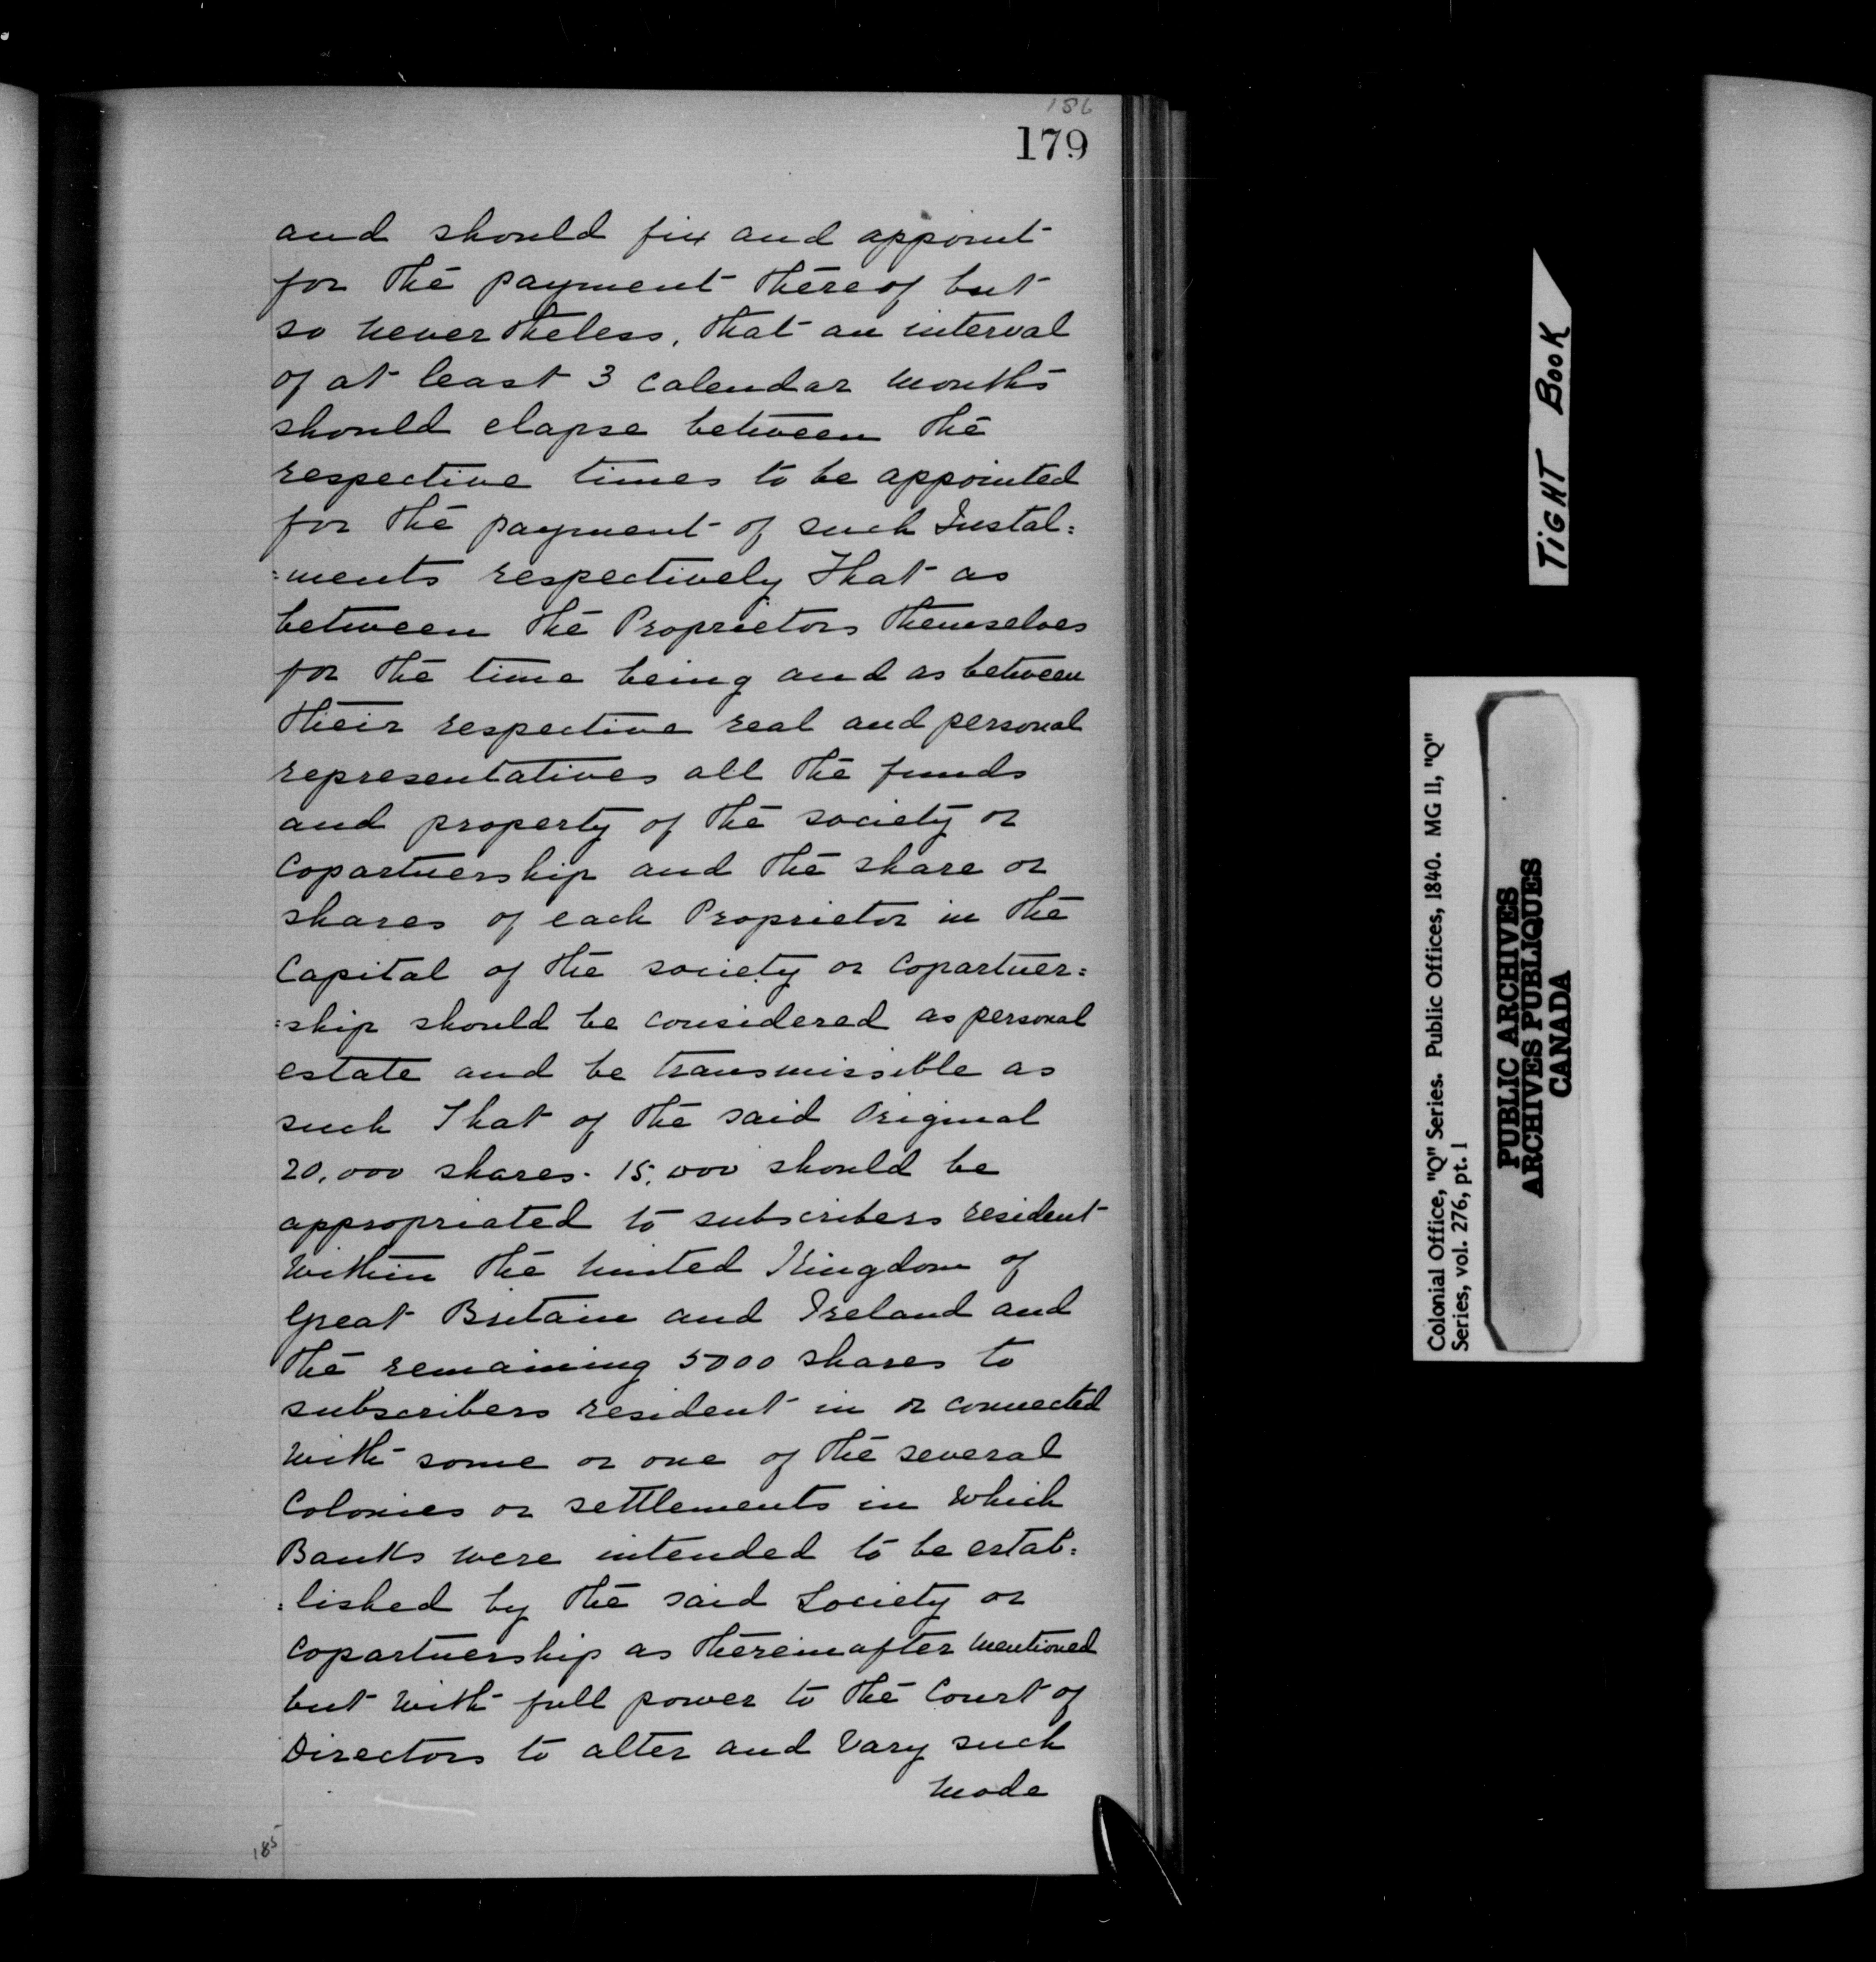 186
179
and should fix and appoint
for the payment thereof but
so nevertheless, that an interval
of at least 3 Calendar months
should elapse between the
respective times to be appointed
for the payment of such Instal=
=ments respectively That as
between the Proprietors themselves
for the time being and as between
their respective real and personal
representatives all the funds
and property of the society or
Copartnership and the share or
shares of each Proprietor in the
Capital of the society or Copartner=
=ship should be considered as personal
estate and be transmissible as
such That of the said Original
20,000 shares. 15,000 should be
appropriated to subscribers resident
within the United Kingdom of
Great Britain and Ireland and
the remaining 5000 shares to
subscribers resident in or connected
with some or one of the several
Colonies or settlements in which
Banks were intended to be estab=
=lished by the said Society or
Copartnership as thereinafter mentioned
but with full power to the Court of
Directors to alter and vary such
mode
185
TIGHT BOOK
Colonial Office, "Q" Series. Public Offices, 1840. MG 11, "Q"
Series, vol. 276, pt. 1
PUBLIC ARCHIVES
ARCHIVES PUBLIQUES
CANADA